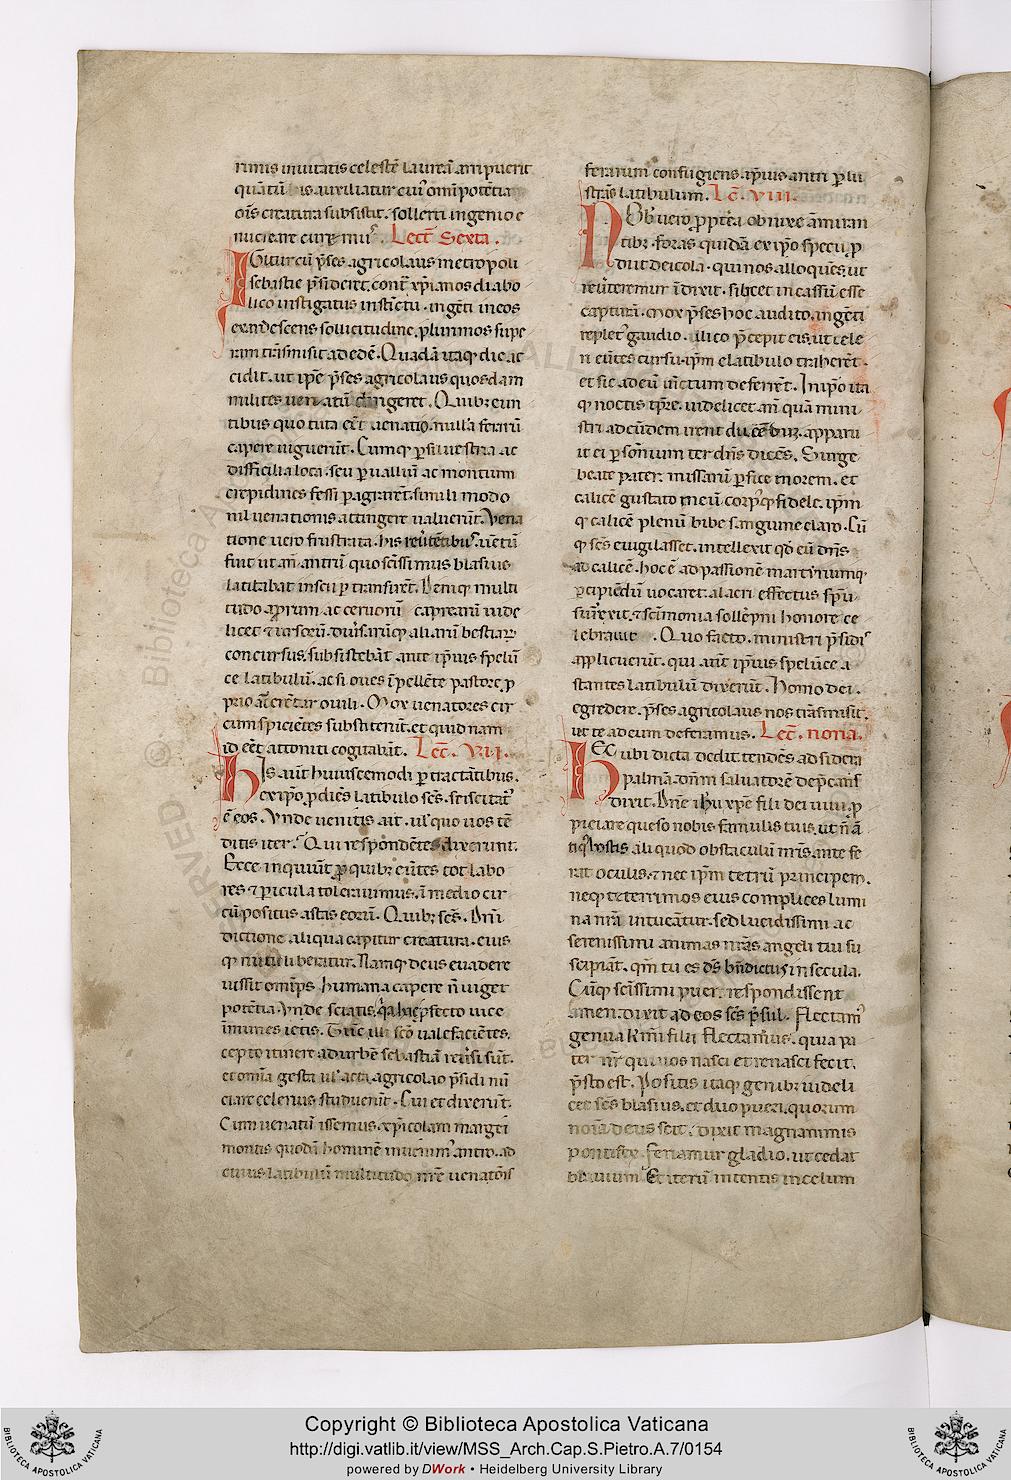 rimis inuitatis celestē laureā arripuerit
quantū his auxiliatur cui' omīpotētia
oīs creatura subsistit. sollerti ingenio e
nucleare
Lect̄ Sexta.
Igitur cū p̄ses agricolaus metropoli
sebastie p̄sideret. cont̄ xp̄ianos diabo
lico instigatus instīctu. ingēti in eos
exardescens sollicitudine. plurimos supe
rum trāsmisit ad edē. Quadā itaq; die ac
cidit. ut ip̄e p̄ses agricolaus quosdam
milites uenatū dirigeret. Quib; eun
tibus quo tuta eēt uenatio. nulla ferarū
capere uiguerūt. Cumq; p siluestria ac
difficilia loca. seu p ualliū ac montium
crepidines fessi pagrarēt. simili modo
nil uenationis attingere ualuerūt. Vena
tione uero frustrata. his reūtētibus. uētū
fuit ut añ antrū quo scīssimus blasius
latitabat inscii p transirēt. Denique multi
tudo aprum ac ceruorū capreaRū uide
licet 7 ursorū. diūsarūq; aliarū bestiaꝝ
concursus. subsistebāt ante ip̄ius spelū
ce latibulū. ac si oues īpellēte pastore. p
prio
ouili. Mox uenatores cir
cumspiciētes substiterūt. et quid nam
id eēt attoniti cogitabāt. Lec̄. VII.
His aūt huiuscemodi p tractantibus.
ex ip̄o pdiēs latibulo sēs. sciscitat'
ē eos. Vnde uenitis ait. ul' quo uos tē
ditis iter. Qui respondētes dixerunt.
Ecce inquiūt p quib; eūtes tot labo
res 7 picula tolerauimus. ī medio cir
cū positus astas eorū. Quib; sēs. Dn̄i
dictione aliqua capitur creatura. eius
q; nutu liberatur. Namq; deus euadere
iussit omīps humana capere n̄ uiget
potētia. Vnde sciatis.
īmunes ictis. Tūc illi scō ualefaciētes.
cepto itinere ad urbē sebastiā reūsi sūt.
et omīa gesta ul' acta. agricolao p̄sidi nū
ciare celerius studuerūt. Cui et dixerūt.
Cum uenatū issemus. xp̄icolam margeī
montis quodā hominē inuenim' antro. ad
cuius latibulū multitudo nr̄e uenatōīs
ferarum confugiens. ip̄ius antri plu
strās latibulum. Lc̄. VIII.
Nob' uero ppt̄ea obnixe āmiran
tib; foras quidā ex ip̄o specu p
diit deicola. qui nos alloquēs. ut
reūteremur īdixit. silicet in cassū esse
capturā. Mox p̄ses hoc audito. ingēti
replet' gaudio. ilico p̄cepit eis. ut cele
ri eūtes cursu. ip̄m e latibulo traherēt.
et sic ad eū uīctum deferrēt. In ip̄o ita
q; noctis tp̄re. uidelicet añ quā mini
stri ad eūdem irent
apparu
it ei p somnium ter dn̄s dicēs. Surge
beate pater. missarū pfice morem. et
calicē gustato meū corp'q; fidele. ip̄m
q; calicē plenū bibe sanguine claro. Cū
q; sēs euigilasset. intellexit qd̄ eū dn̄s
ad calicē. hoc ē ad passionē martyriumq;
pcipiēdū uocaret. alacri effectus sp̄u
surrexit. 7 scīmonia sollēpni honore ce
lebrauit. Quo facto. ministri p̄sidis
applicuerūt. qui aūt ip̄ius spelūce a
stantes latibulū dixerūt. Homo dei.
egredere. p̄ses agricolaus nos trāsmisit.
ut te ad eum deferamus. Lec̄. nona.
Hec ubi dicta dedit. tendēs ad sidera
palmā. dn̄m saluatorē dep̄cans
dixit. Dn̄e ih̄u xp̄e fili dei uiui. p
piciare queso nobis famulis tuis. ut n̄ ā
tiq' hostis aliquod obstaculū nr̄is. ante fe
rat oculis. 7 nec ip̄m tetrū principem.
neq; teterrimos eius complices lumi
na nr̄a intueātur. sed lucidissimi ac
serenissimi animas nr̄as angeli tui su
scipiāt. qm̄ tu es ds̄ bn̄dictus in secula.
Cūq; scīssimi pueri respondissent
amen: dixit ad eos sēs p̄sul. Flectam'
genua
filii flectam'. quia pa
ter nr̄ qui uos nasci et renasci fecit.
p̄sto est. Positis itaq; genib; uideli
cet sēs blasius. et duo pueri. quorum
noīa deus scit: dixit magnanimis
pontifex. feriamur gladio. ut cedat
Et iterū intentis in celum
Copyright © Biblioteca Apostolica Vaticana
http://digi.vatlib.it/view/MSS_Arch.Cap.S.Pietro.A.7/0154
powered by DWork • Heidelberg University Library